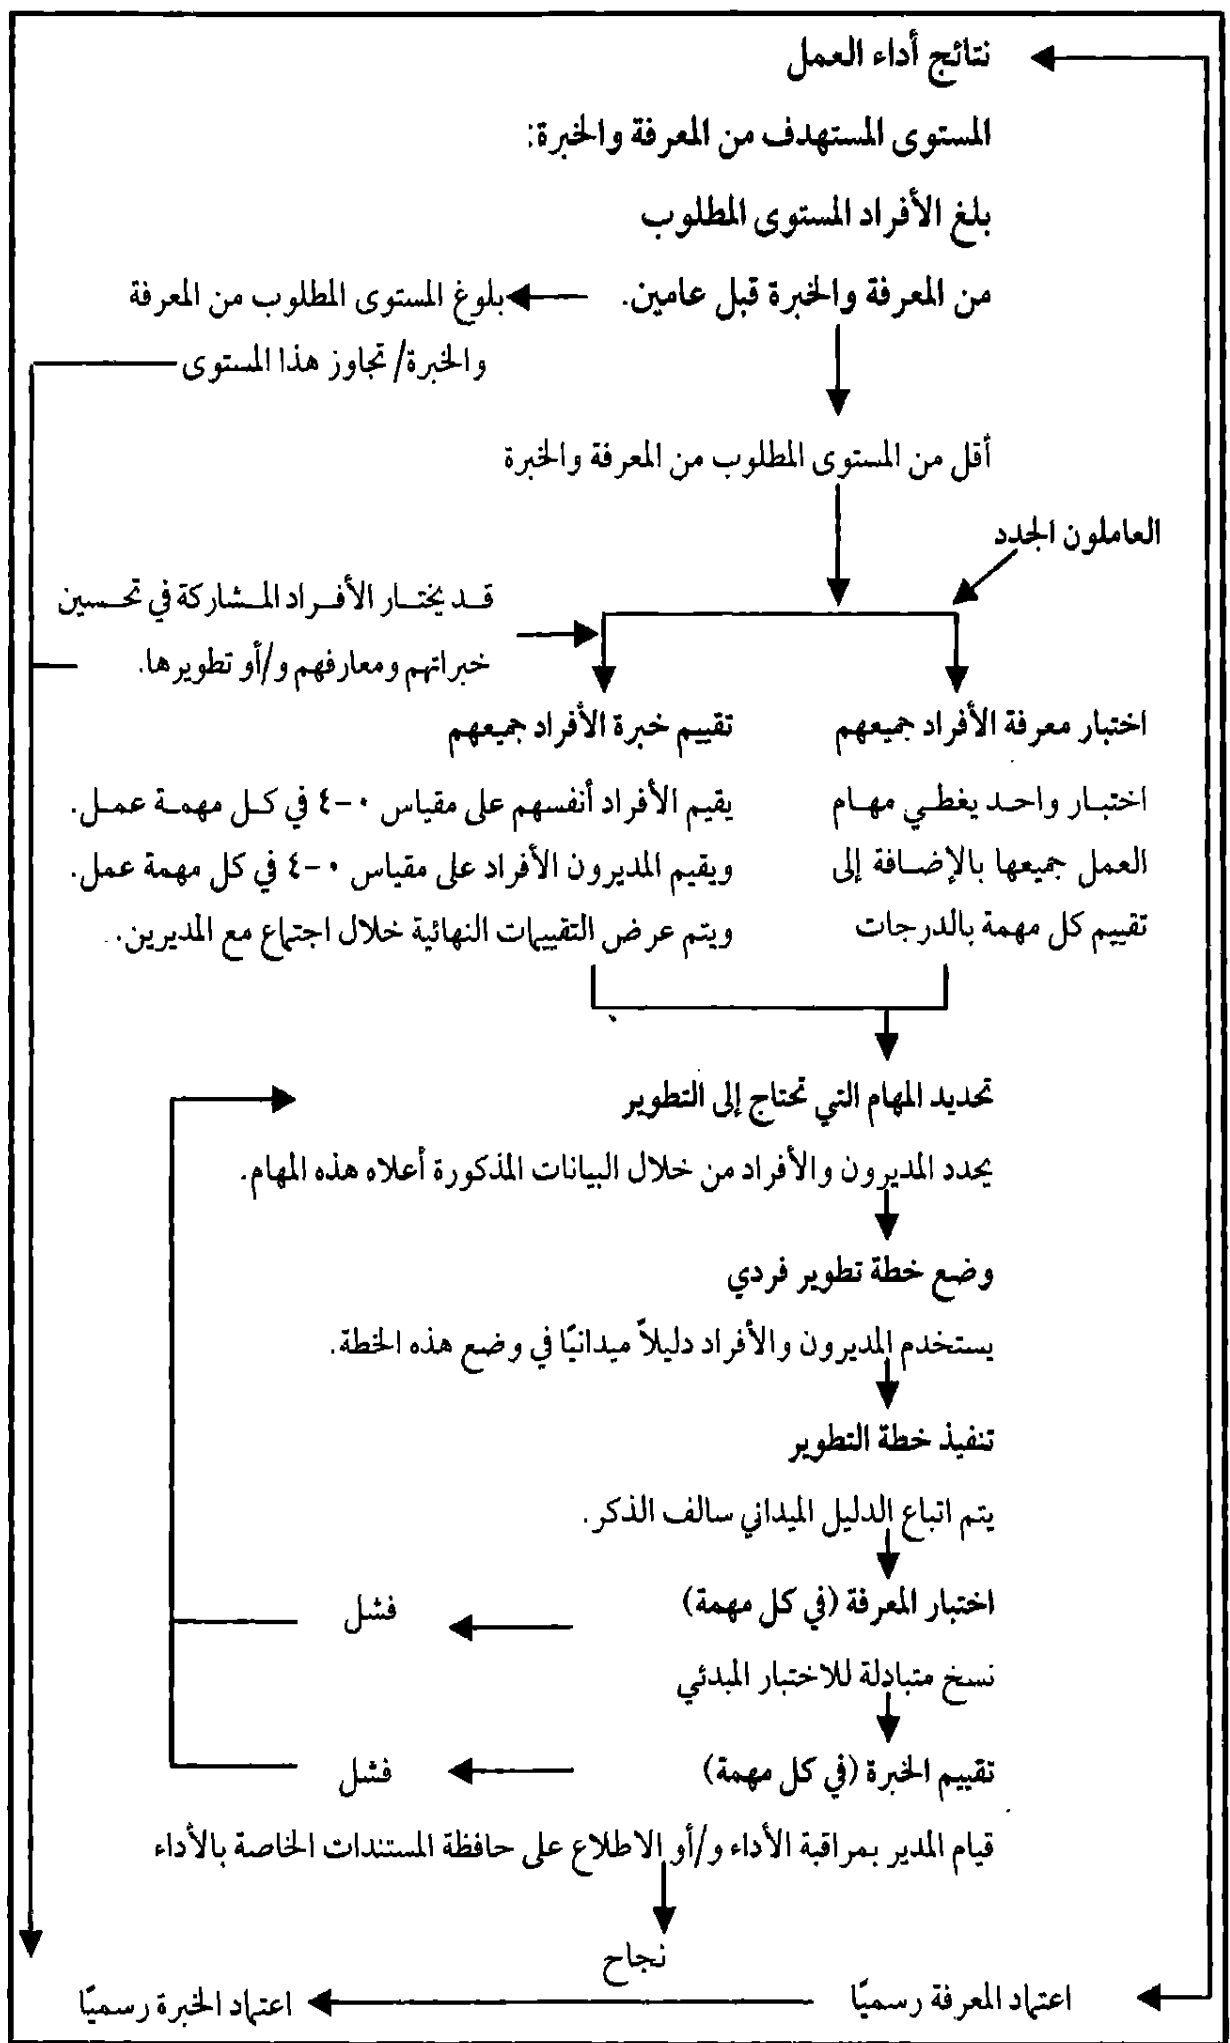 نتائج أداء العمل
المستوى المستهدف من المعرفة والخبرة:
بلغ الأفراد المستوى المطلوب
من المعرفة والخبرة قبل عامين.
بلوغ المستوى المطلوب من المعرفة
والخبرة/ تجاوز هذا المستوى
أقل من المستوى المطلوب من المعرفة والخبرة
العاملون الجدد
قد يختار الأفراد المشاركة في تحسين
خبراتهم ومعارفهم و/أو تطويرها.
اختبار معرفة الأفراد جميعهم
اختبار واحد يغطي مهام
العمل جميعها بالإضافة إلى
تقييم كل مهمة بالدرجات
تقييم خبرة الأفراد جميعهم
يقيم الأفراد أنفسهم على مقياس ٠-٤ في كل مهمة عمل.
ويقيم المديرون الأفراد على مقياس ٠-٤ في كل مهمة عمل.
ويتم عرض التقييمات النهائية خلال اجتماع مع المديرين.
تحديد المهام التي تحتاج إلى التطوير
يحدد المديرون والأفراد من خلال البيانات المذكورة أعلاه هذه المهام.
وضع خطة تطوير فردي
يستخدم المديرون والأفراد دليلاً ميدانيًا في وضع هذه الخطة.
تنفيذ خطة التطوير
يتم اتباع الدليل الميداني سالف الذكر.
اختبار المعرفة (في كل مهمة)
فشل
نسخ متبادلة للاختبار المبدئي
تقييم الخبرة (في كل مهمة)
فشل
قيام المدير بمراقبة الأداء و/أو الاطلاع على حافظة المستندات الخاصة بالأداء
نجاح
اعتماد المعرفة رسميًا
اعتماد الخبرة رسميًا